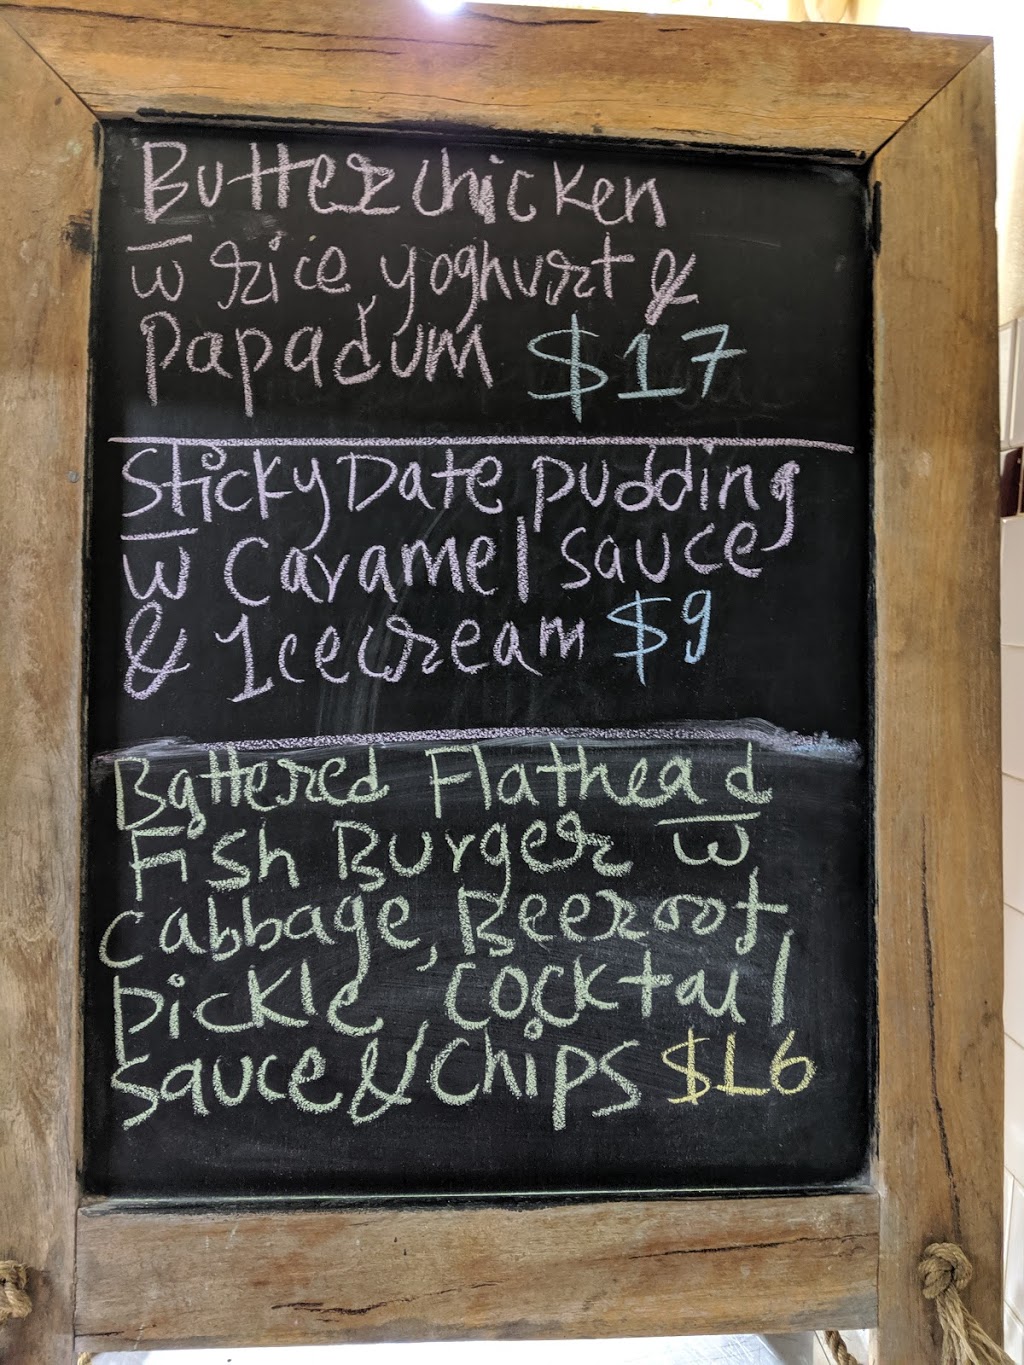 Butterchicken
w rice, yoghurt &
Papadum $17
Sticky Date pudding
w caramel sauce
& Icecream $9
Battered Flathead
Fish Burger w
cabbage, Beeroot,
Pickle, cocktail
sauce & chips $16